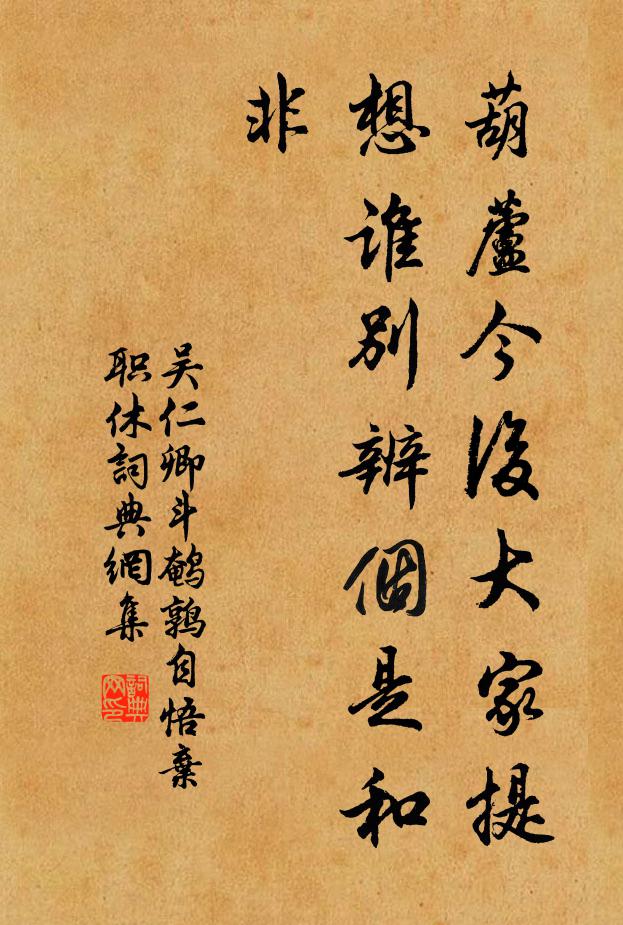 葫蘆今後大家提
想誰別辨個是和
非
吴仁卿斗鹌鹑自悟棄
职休詞典網集
詞典
网印